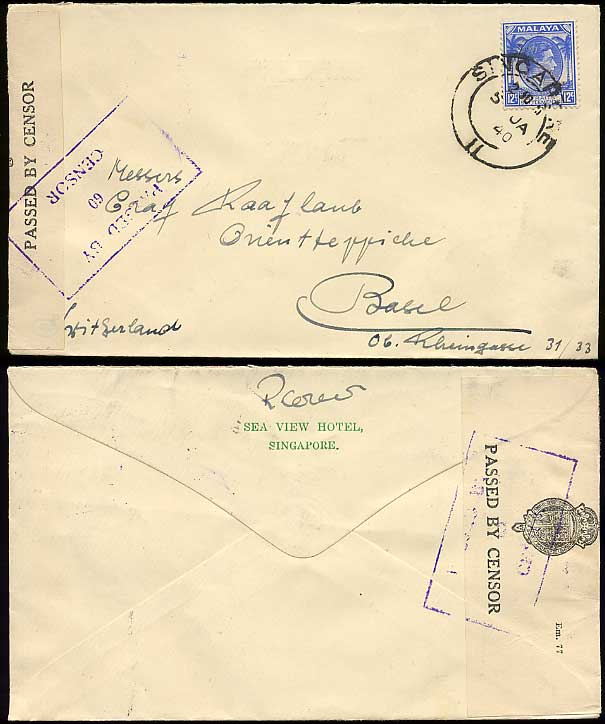 PASSED BY CENSOR
MALAYA
12c 12c
SINGAPORE
JA
40
11
PASSED BY
60
CENSOR
Messers
Graf Raaflaub
Orientteppiche
Basel
Ob. Rheingasse 31/33
Switzerland
SEA VIEW HOTEL,
SINGAPORE.
PASSED BY CENSOR
Em. 77